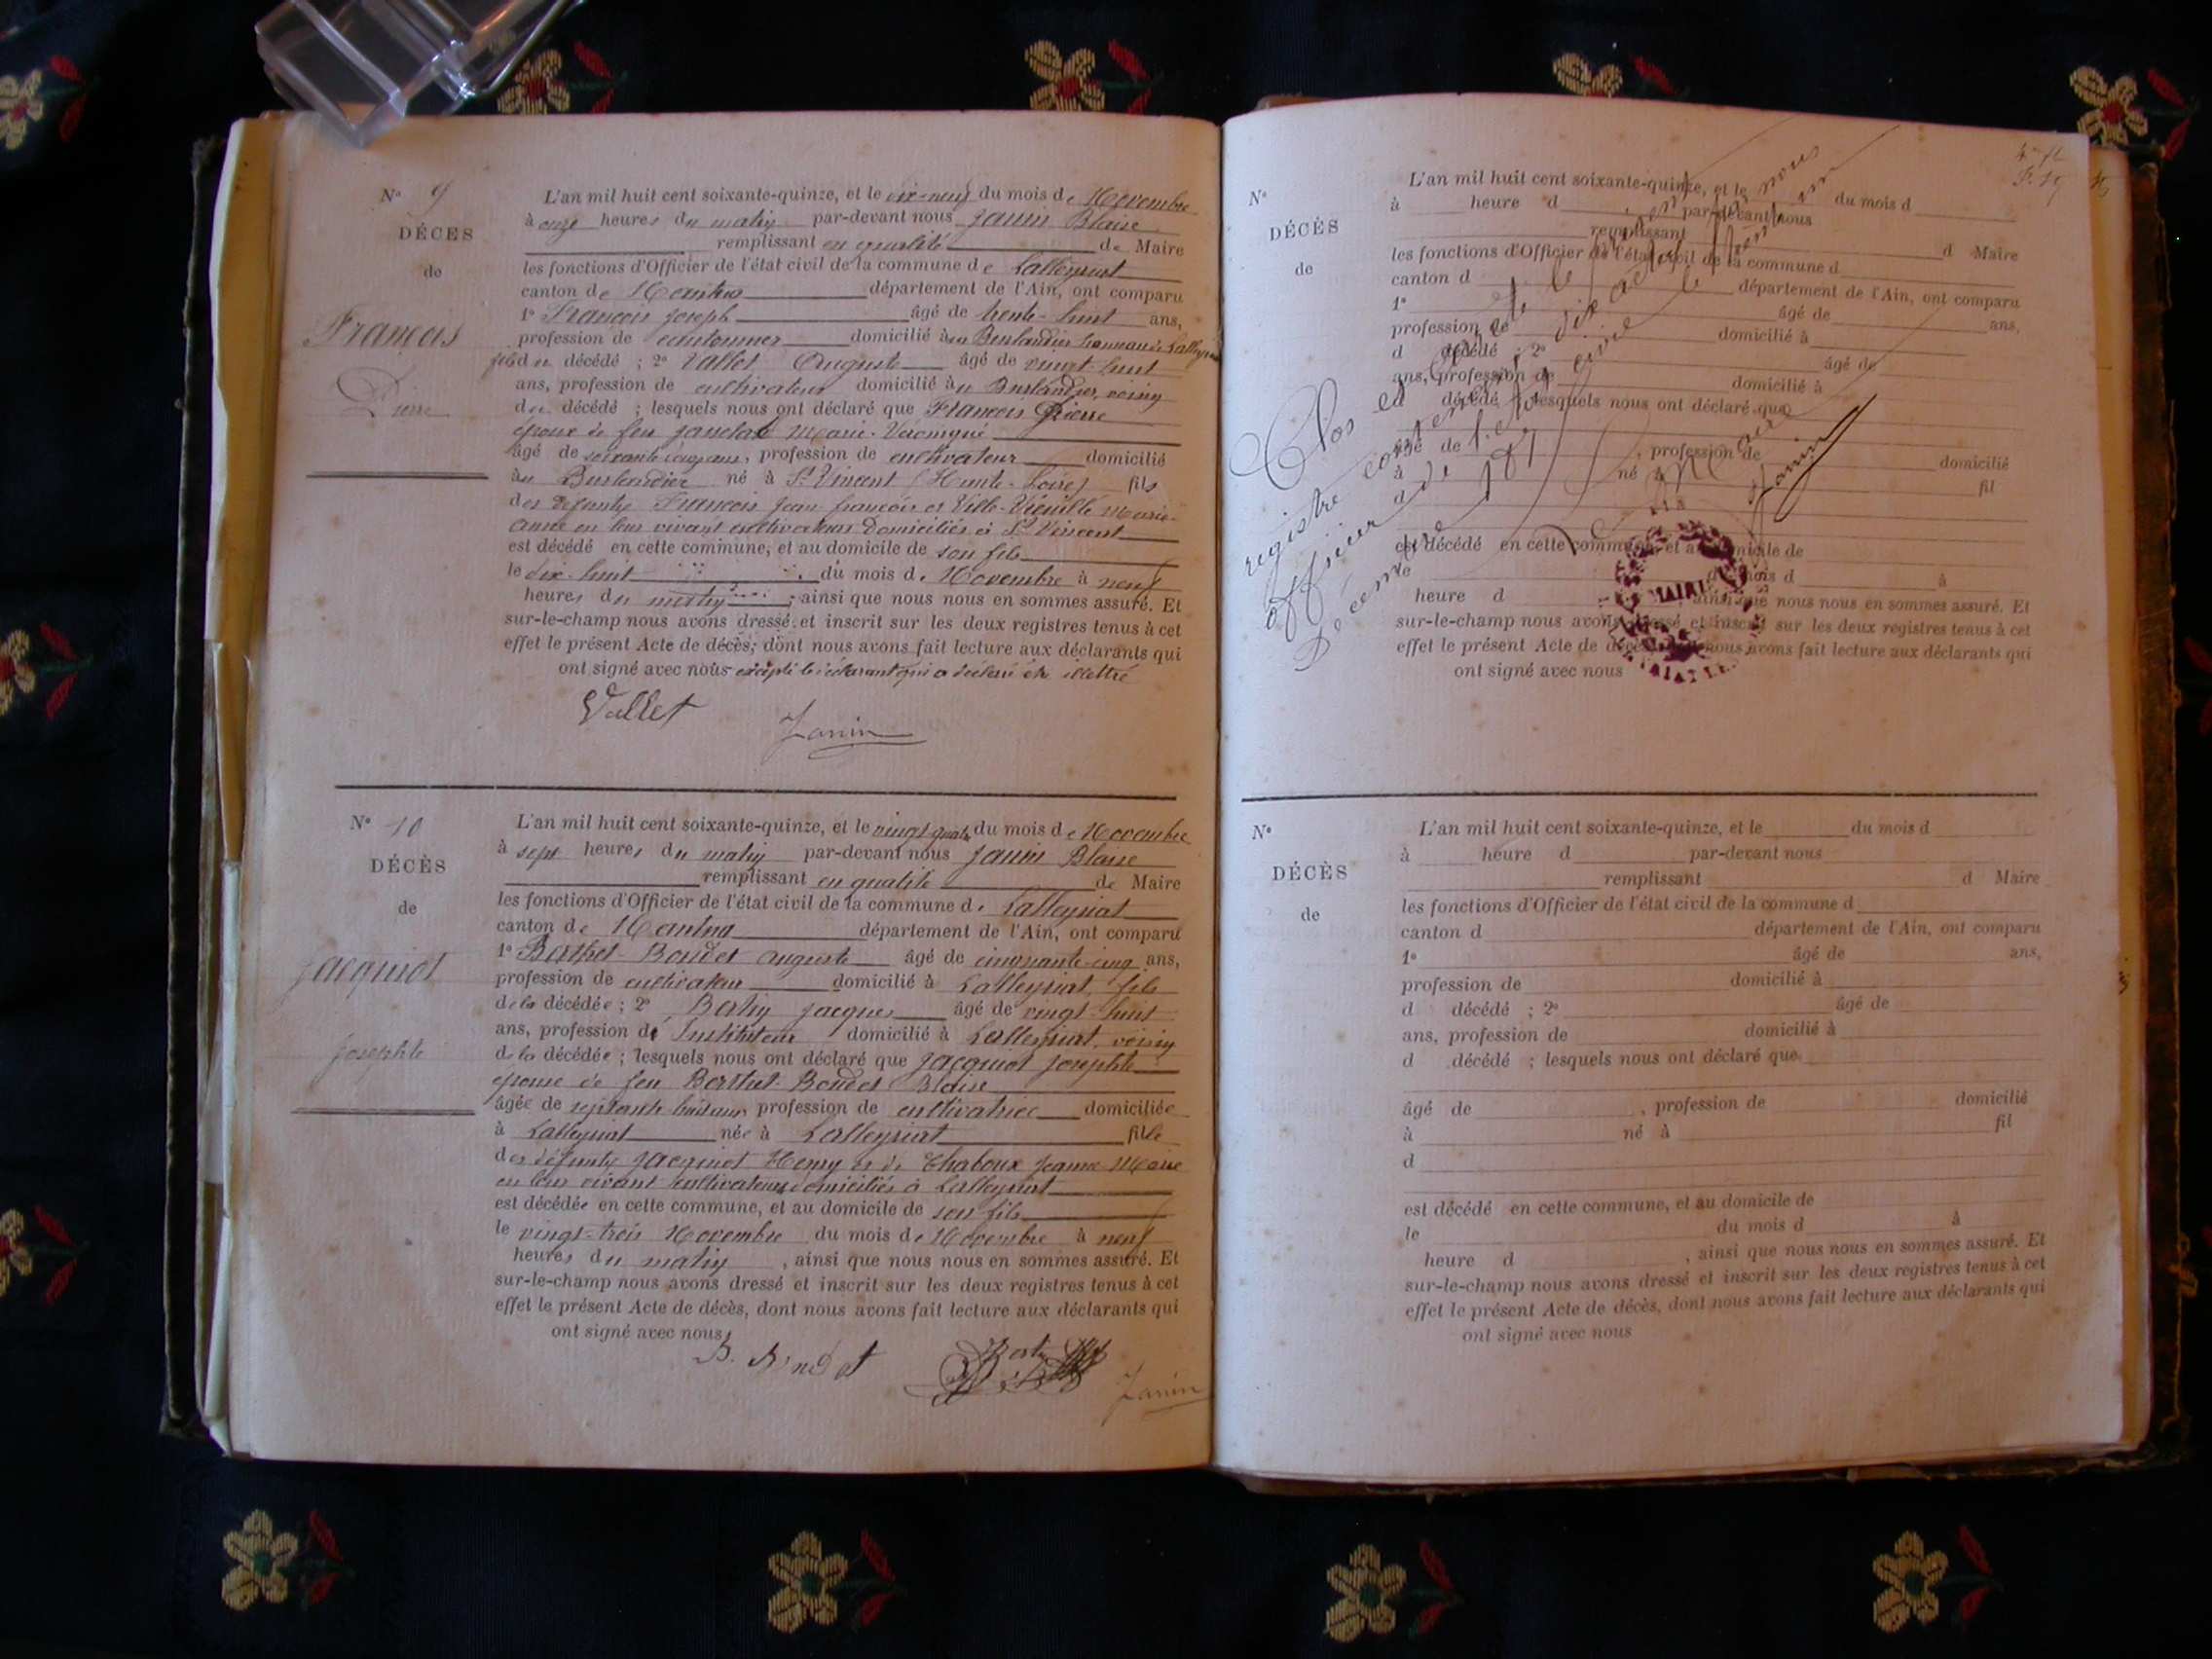 N° 9
DÉCES
de
François
Pierre
L'an mil huit cent soixante-quinze, et le dix-neuf du mois de Novembre
à onze heures du matin par-devant nous Janin Blaise
remplissant en qualité de Maire
les fonctions d'Officier de l'état civil de la commune de Lalleyriat
canton de Nantua département de l'Ain, ont comparu
1° François Joseph âgé de trente-huit ans,
profession de cantonnier domicilié au Burlandier hameau de Lalleyriat
fils du décédé ; 2° Vallet Auguste âgé de vingt-huit
ans, profession de cultivateur domicilié au Burlandier, voisin
du décédé ; lesquels nous ont déclaré que François Pierre
époux de feu Marie-Véronique
âgé de soixante cinq ans, profession de cultivateur domicilié
au Burlandier né à St Vincent (Haute-Loire) fils
des défunts François Jean françois et Ville-Vieille Marie-
Anne en leur vivant cultivateurs domiciliés à St Vincent
est décédé en cette commune, et au domicile de son fils
le dix-huit du mois de Novembre à neuf
heures du matin ; ainsi que nous nous en sommes assuré. Et
sur-le-champ nous avons dressé et inscrit sur les deux registres tenus à cet
effet le présent Acte de décès, dont nous avons fait lecture aux déclarants qui
ont signé avec nous excepté le déclarant qui a déclaré être illettré
Vallet Janin
N° 10
DÉCÈS
de
Jacquiot
Josephte
L'an mil huit cent soixante-quinze, et le vingt-quatre du mois de Novembre
à sept heures du matin par-devant nous Janin Blaise
remplissant en qualité de Maire
les fonctions d'Officier de l'état civil de la commune de Lalleyriat
canton de Nantua département de l'Ain, ont comparu
1° Berthet-Bondet Auguste âgé de cinquante-cinq ans,
profession de cultivateur domicilié à Lalleyriat, fils
de la décédée ; 2° Bertin Jacques âgé de vingt-huit
ans, profession de Instituteur domicilié à Lalleyriat, voisin
de la décédée ; lesquels nous ont déclaré que Jacquiot Josephte
épouse de feu Berthet-Bondet Blaise
âgée de septante huit ans profession de cultivatrice domiciliée
à Lalleyriat née à Lalleyriat fille
des défunts Jacquiot Henry et de Chaboux Jeanne Marie
en leur vivant cultivateurs domiciliés à Lalleyriat
est décédée en cette commune, et au domicile de son fils
le vingt-trois Novembre du mois de Novembre à neuf
heures du matin, ainsi que nous nous en sommes assuré. Et
sur-le-champ nous avons dressé et inscrit sur les deux registres tenus à cet
effet le présent Acte de décès, dont nous avons fait lecture aux déclarants qui
ont signé avec nous
B. Bondet Bertin Janin
N°
DÉCÈS
de
L'an mil huit cent soixante-quinze, et le du mois d
à heure d par-devant nous
remplissant d Maire
les fonctions d'Officier de l'état civil de la commune d
canton d département de l'Ain, ont comparu
1° âgé de ans,
profession de domicilié à
d décédé ; 2° âgé de
ans, profession de domicilié à
d décédé ; lesquels nous ont déclaré que
âgé de , profession de domicilié
à né à fil
d
est décédé en cette commune, et au domicile de
le du mois d à
heure d , ainsi que nous nous en sommes assuré. Et
sur-le-champ nous avons dressé et inscrit sur les deux registres tenus à cet
effet le présent Acte de décès, dont nous avons fait lecture aux déclarants qui
ont signé avec nous
Clos et arrêté le présent
registre contenant dix actes par nous
officier de l'état civil le trente un
Décembre 1875
Le Maire
Janin
MAIRIE
N°
DÉCÈS
de
L'an mil huit cent soixante-quinze, et le du mois d
à heure d par-devant nous
remplissant d Maire
les fonctions d'Officier de l'état civil de la commune d
canton d département de l'Ain, ont comparu
1° âgé de ans,
profession de domicilié à
d décédé ; 2° âgé de
ans, profession de domicilié à
d décédé ; lesquels nous ont déclaré que
âgé de , profession de domicilié
à né à fil
d
est décédé en cette commune, et au domicile de
le du mois d à
heure d , ainsi que nous nous en sommes assuré. Et
sur-le-champ nous avons dressé et inscrit sur les deux registres tenus à cet
effet le présent Acte de décès, dont nous avons fait lecture aux déclarants qui
ont signé avec nous